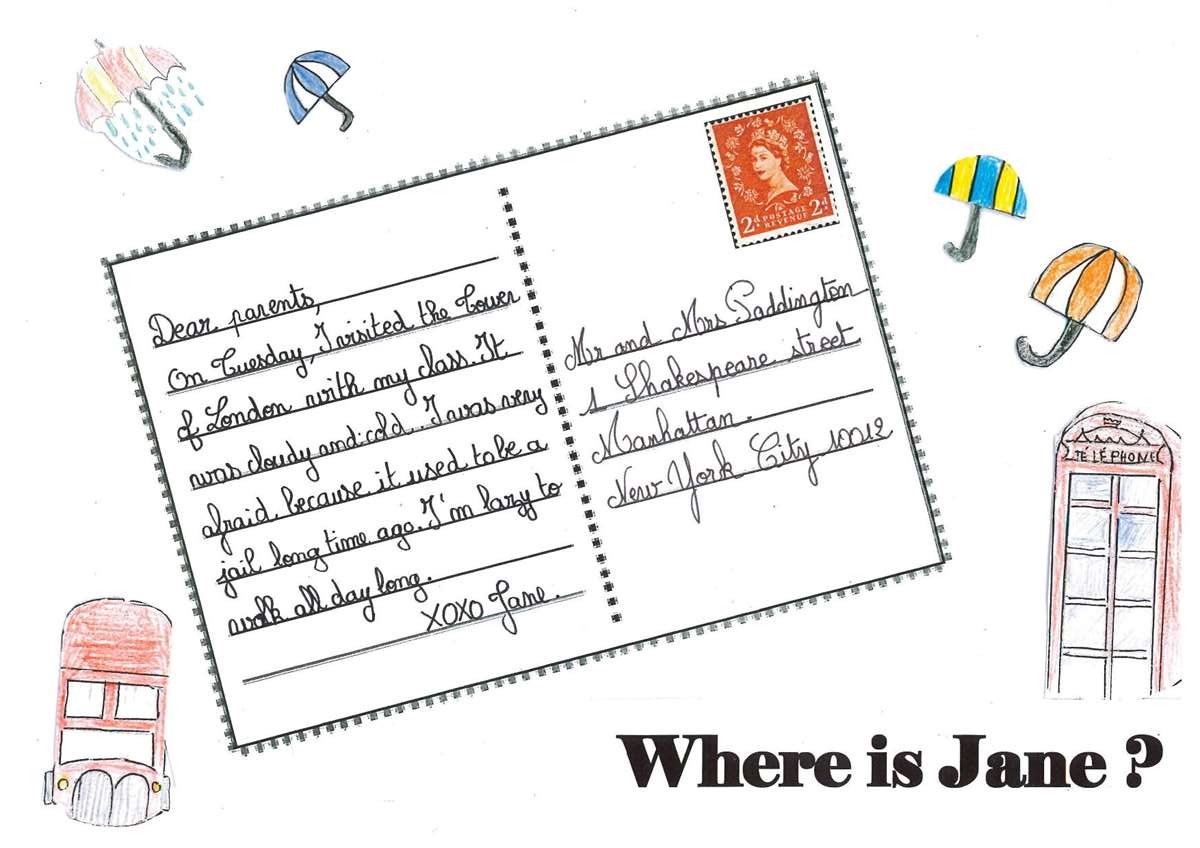 Dear parents,
On Tuesday, I visited the Tower
of London with my class. It
was cloudy and cold. I was very
afraid because it used to be a
jail long time ago. I'm lazy to
walk all day long.
XOXO Jane.
2d POSTAGE REVENUE 2d
Mr and Mrs Paddington
1 Shakespeare street
Manhattan.
New York City 10012
TÉLÉPHONE
Where is Jane ?